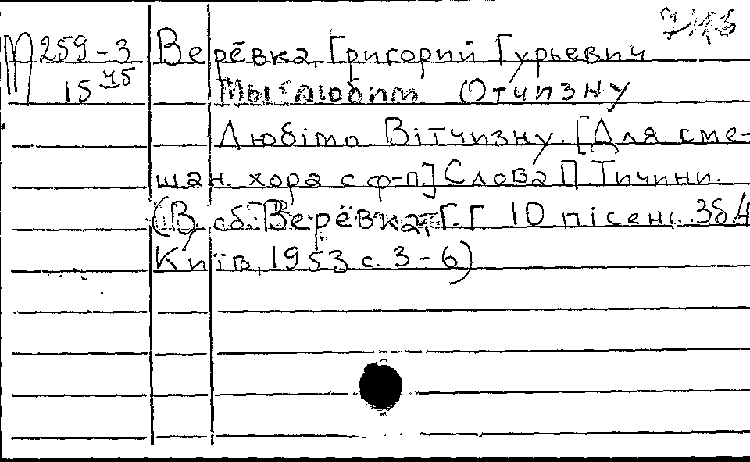 М 259-3
15 45
Верёвка, Григорий Гурьевич
Мы любим Отчизну
Любімо Вітчизну. [Для сме-
шан. хора с ф-п] Слова П. Тичини.
(В сб.: Верёвка, Г. Г. 10 пісень. Зб. 4
Київ, 1953 с. 3-6)